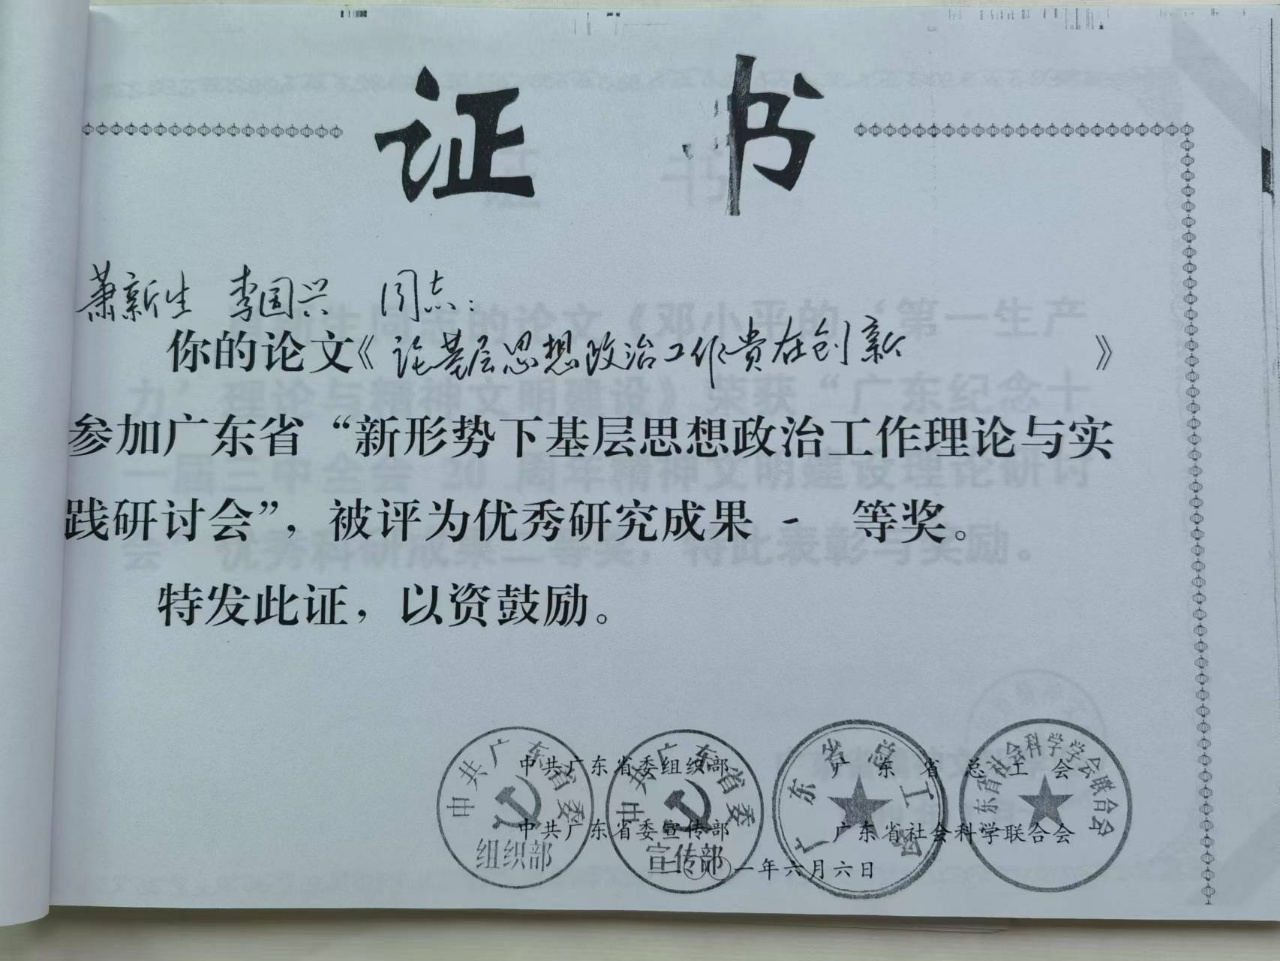 证 书
萧新生 李国兴 同志：
你的论文《论基层思想政治工作贵在创新》
参加广东省“新形势下基层思想政治工作理论与实
践研讨会”，被评为优秀研究成果 一 等奖。
特发此证，以资鼓励。
中共广东省委组织部 广东省总工会
中共广东省委宣传部 广东省社会科学联合会
一年六月六日
中共广东省委
组织部
中共广东省委
宣传部
广东省总工会
广东省社会科学学会联合会